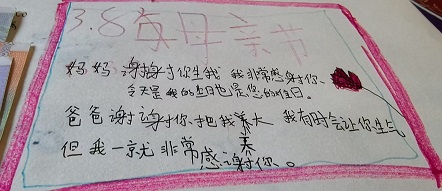 3.8 母亲节
妈妈 谢谢你生我 我非常感谢你、
今天是我的生日也是您的日。
爸爸谢谢你、把我养大 我有时会让你生气
养
但我一就非常感谢你。